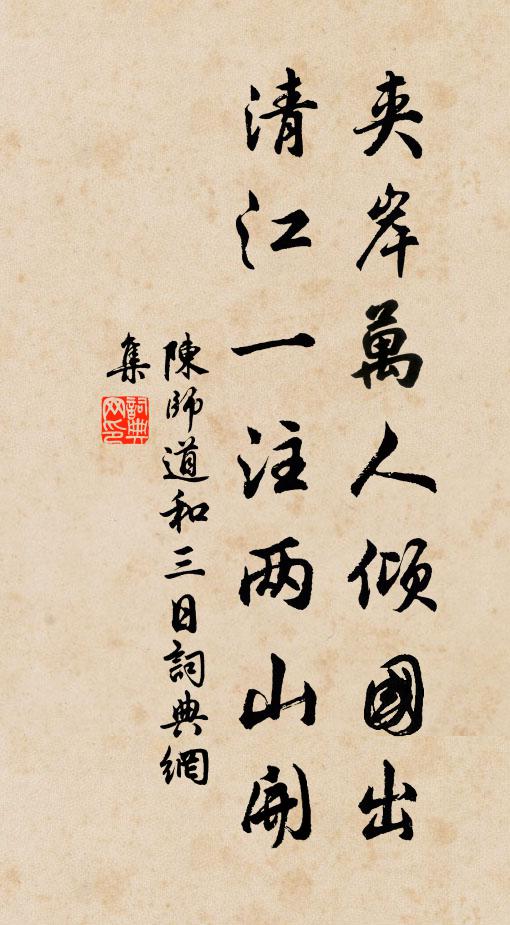 夹岸萬人倾國出
清江一注两山開
陳師道和三日詞典網
集
詞典网印